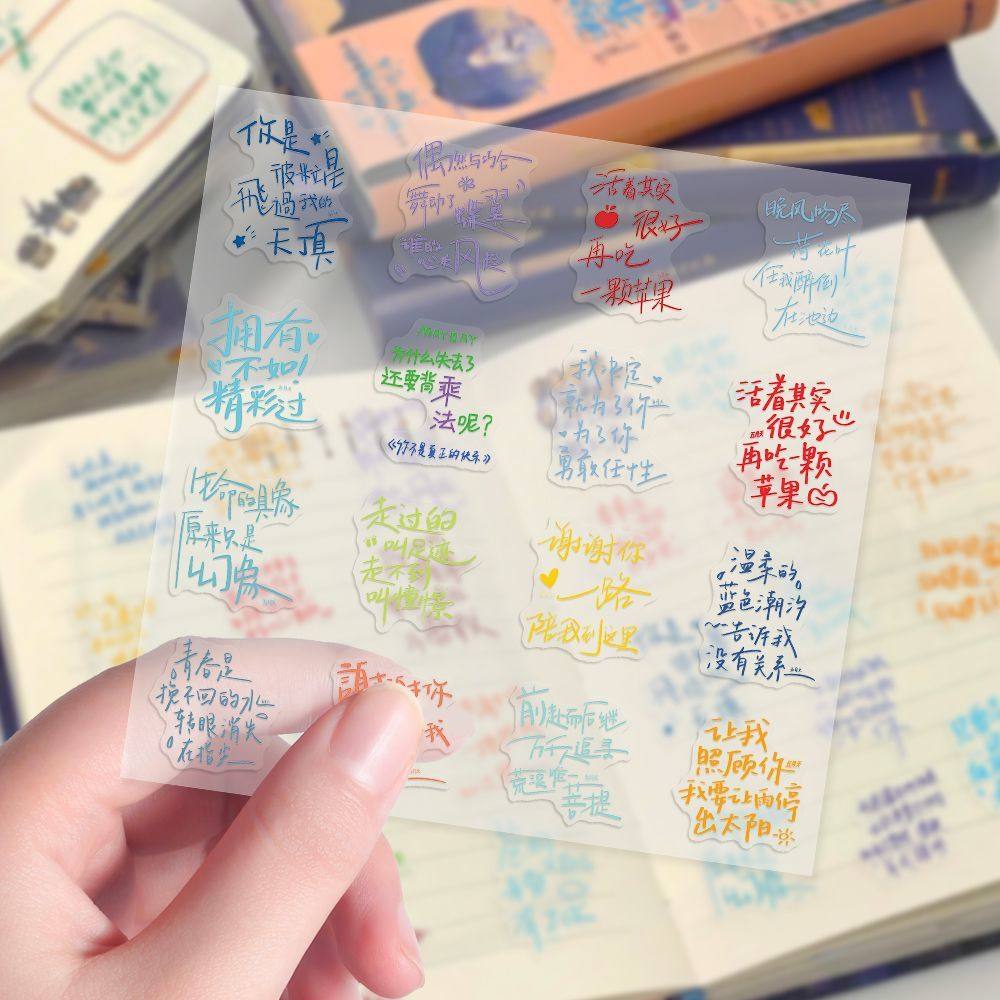 你是
飛過我的
天頂
偶然与巧合
舞动了
蝶翼
谁的
心头风起
活着其实
很好
再吃
一颗苹果
晚风吻尽
荷花叶
任我醉倒
在池边
拥有
不如
精彩过
MAYDAY
为什么失去了
还要背乘
法呢?
《你不是真正的快乐》
我决定
就为了你
为了你
勇敢任性
活着其实
很好
再吃一颗
苹果
生命的具象
原来只是
幻象
走过的
叫足迹
走不到
叫憧憬
谢谢你
一路
陪我到这里
温柔的
蓝色潮汐
告诉我
没有关系
青春是
挽不回的水
转眼消失
在指尖
你
我
前赴而后继
万千人追寻
荒漠唯一
菩提
让我
照顾你
我要让雨停
出太阳